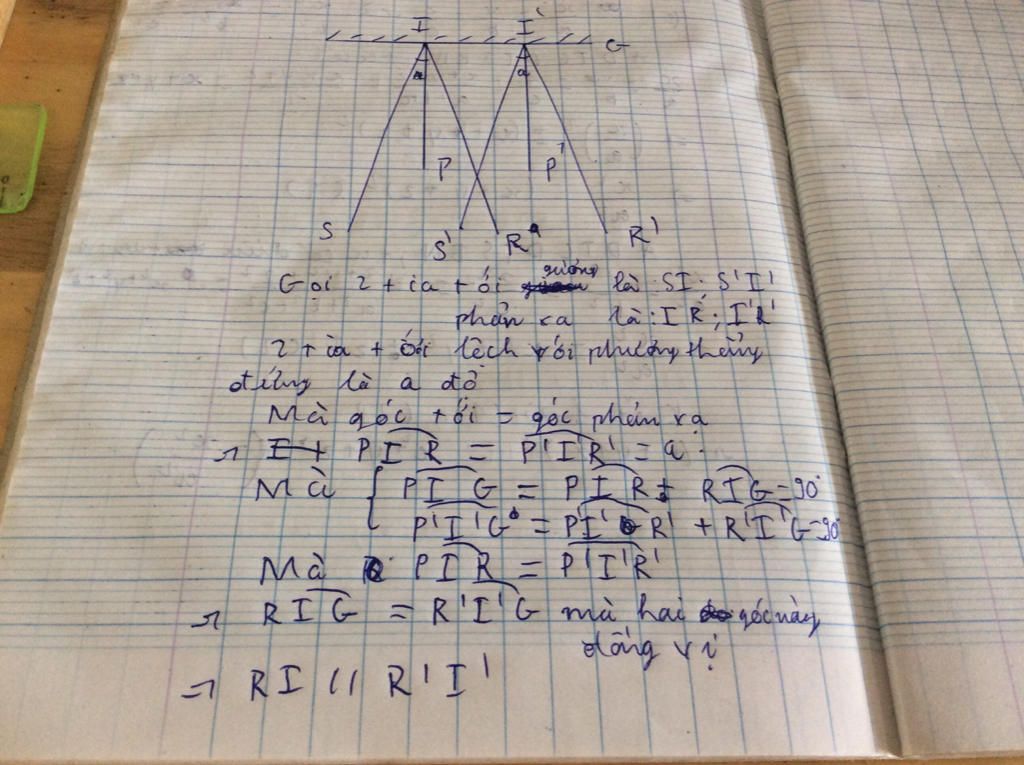 I I'
G
a a
P P'
S S' R R'
Gọi 2 tia tới gương là: SI; S'I'
phản xạ là: IR; I'R'
2 tia tới lệch với phương thẳng
đứng là a độ
Mà góc tới = góc phản xạ
→ PIR = P'IR' = a.
Mà { PIG = PIR + RIG = 90°
P'I'G = PI'R' + R'I'G = 90°
Mà PIR = P'I'R'
→ RIG = R'I'G mà hai góc này
đồng vị
→ RI // R'I'